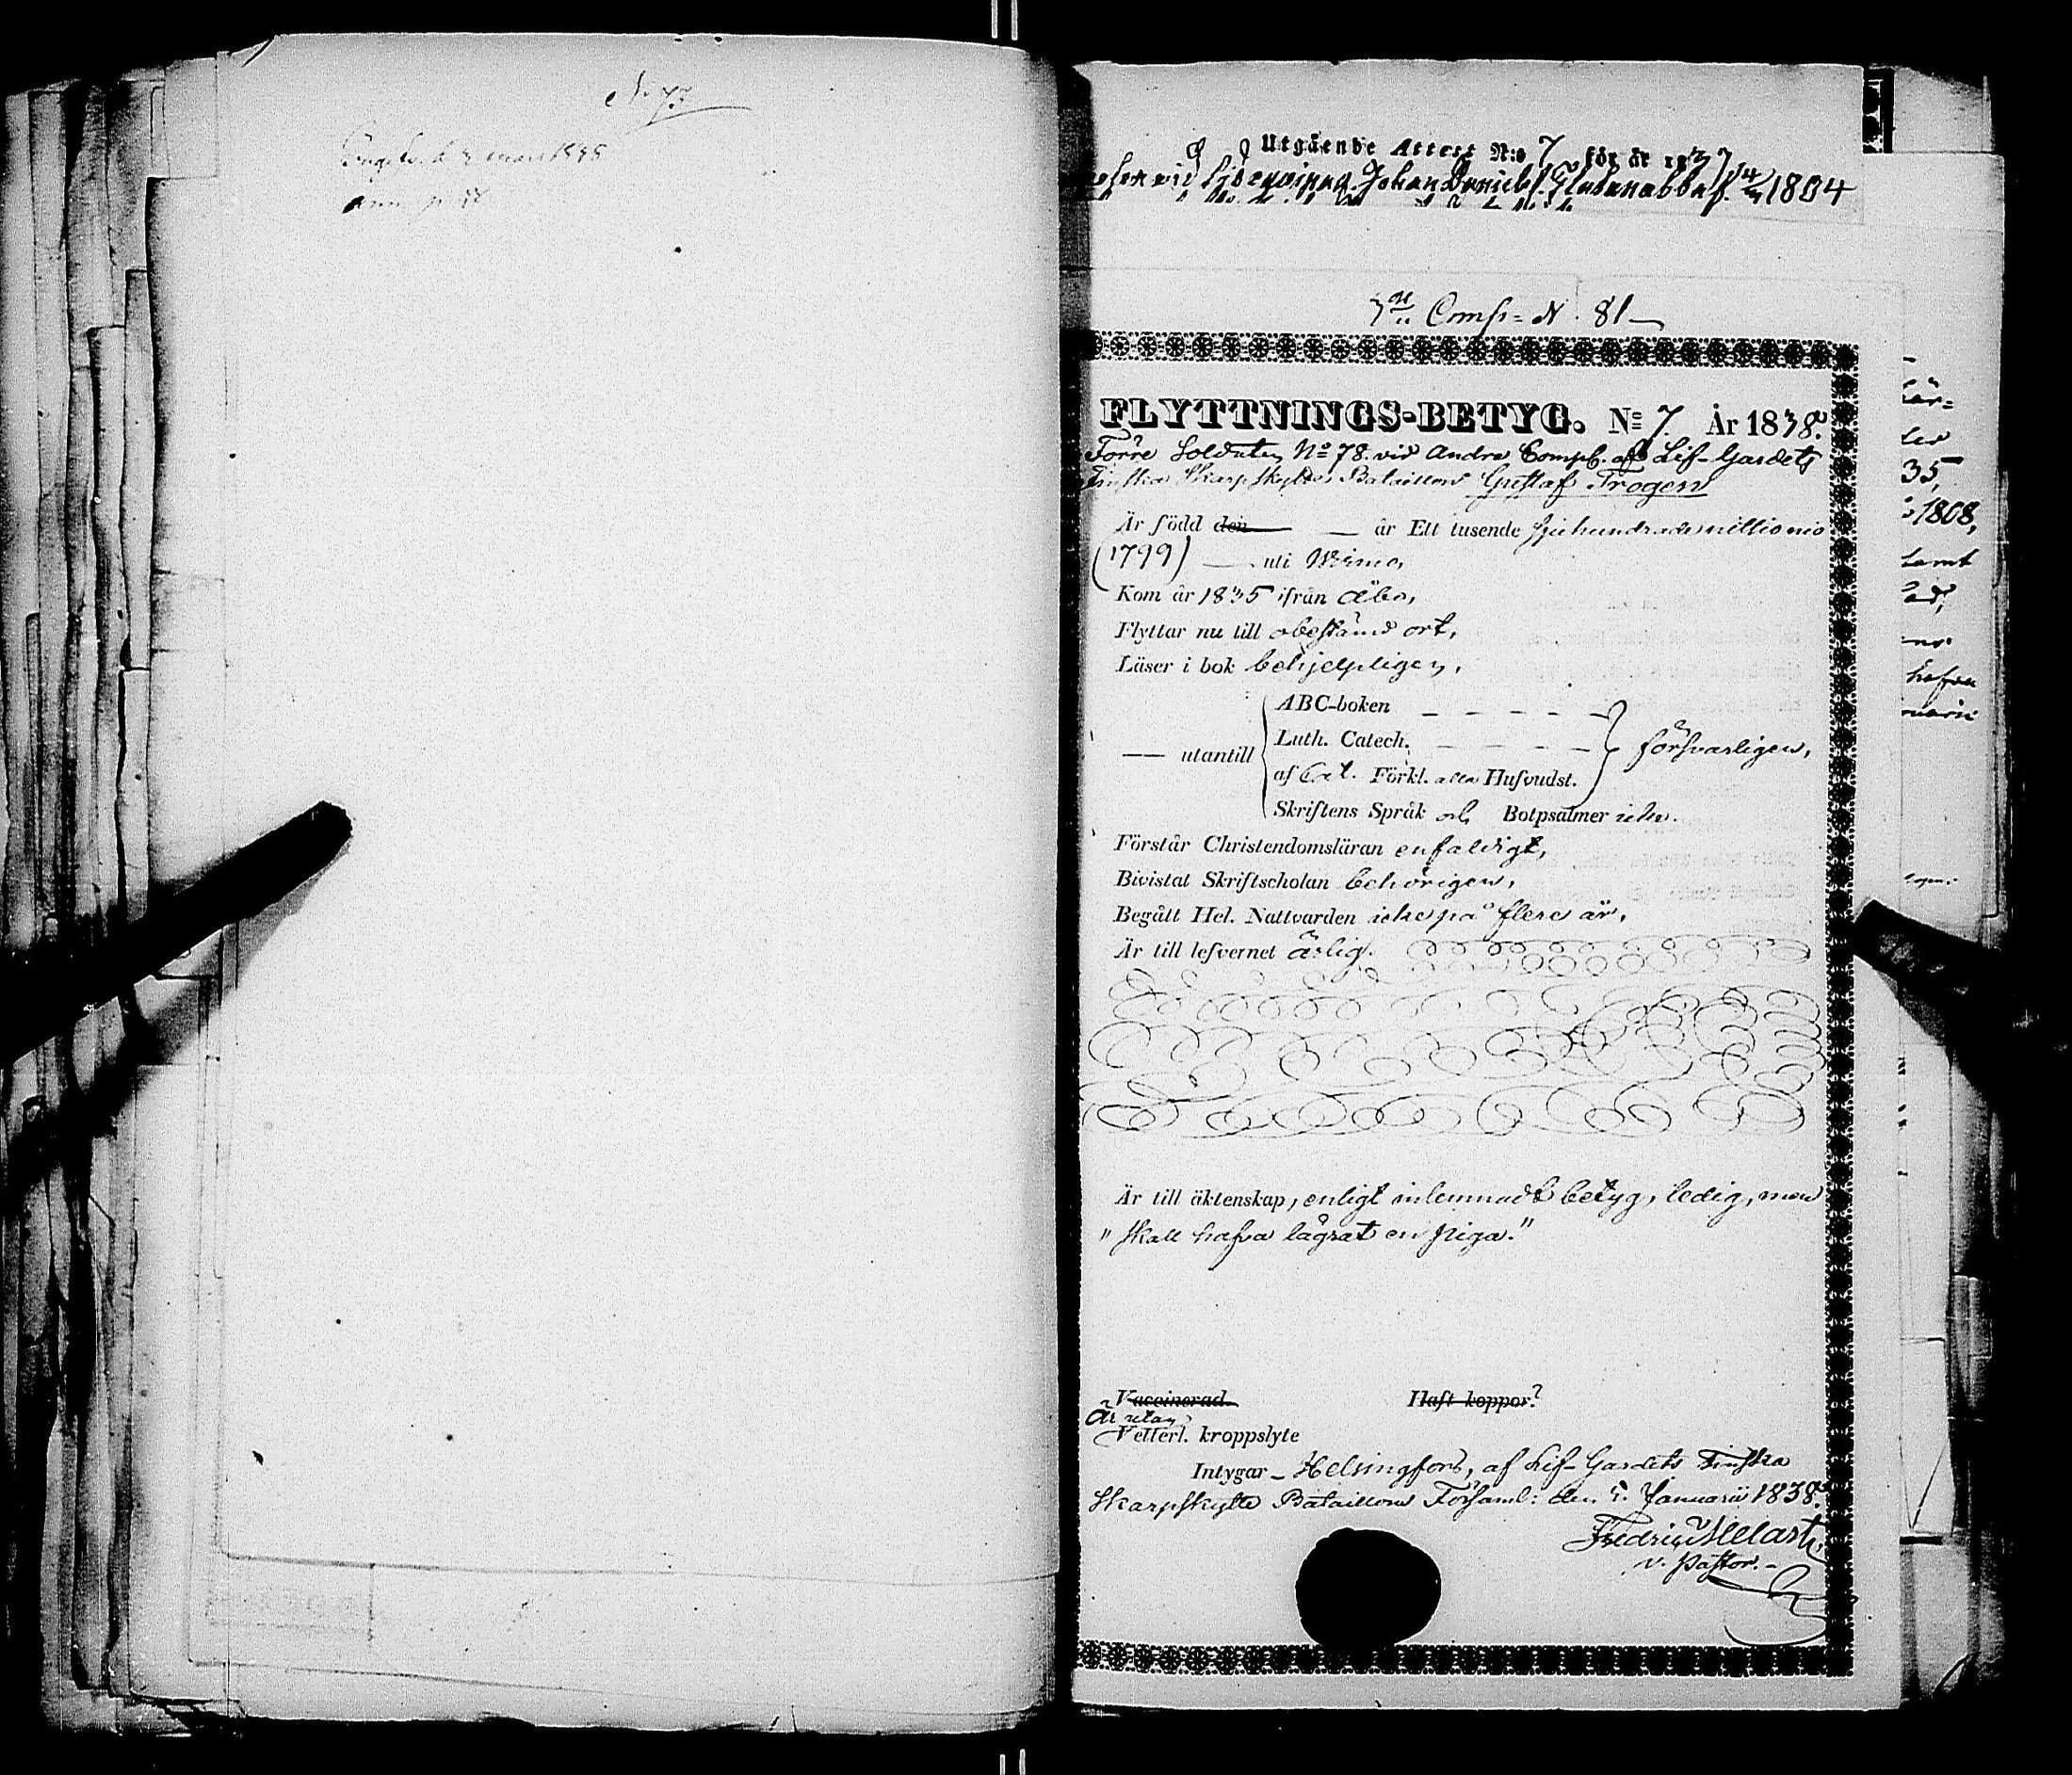 N: 73
Utgående Attest N:o 7 för år 1837
Johan Daniel 1804
3de Comp: N. 81
FLYTTNINGS-BETYG. No 7. År 1838.
Förre Soldaten No 78. vid Andra Comp. af Lif-Gardets
Finska Skarpskytte Bataillon Gustaf Trogen
Är född den — — år Ett tusende sjuhundradenittionio
(1799) — uti Wirmo,
Kom år 1835 ifrån Åbo,
Flyttar nu till obestämd ort,
Läser i bok behjelpligen,
ABC-boken
Luth. Catech.
— utantill försvarligen,
af Cat. Förkl. alla Hufvudst.
Skriftens Språk och Botpsalmer icke.
Förstår Christendomsläran enfaldigt,
Bivistat Skriftscholan behörigen,
Begått Hel. Nattvarden icke på flere år,
Är till lefvernet ärlig.
Är till äktenskap, enligt inlemnadt betyg, ledig, men
"skall hafva lägrat en piga."
Vaccinerad. Haft koppor?
Är utan
Vetterl. kroppslyte
Intygar – Helsingfors, af Lif-Gardets Finska
Skarpskytte Bataillons Församl: den 5. Januarii 1838.
Fredric Helart
v. Pastor.
35,
1808,